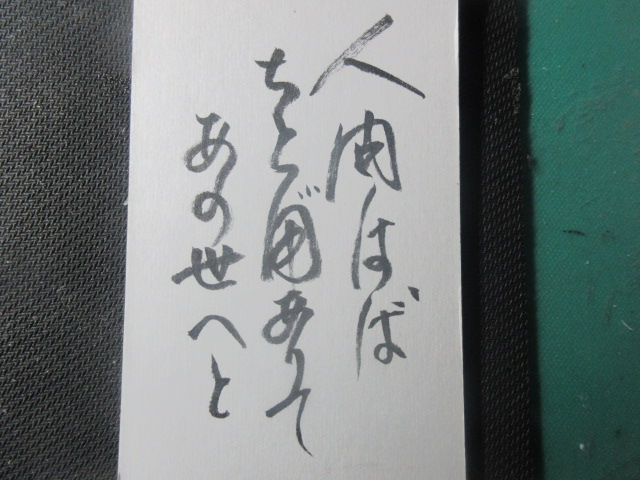 人問はば
ちと用ありて
あの世へと